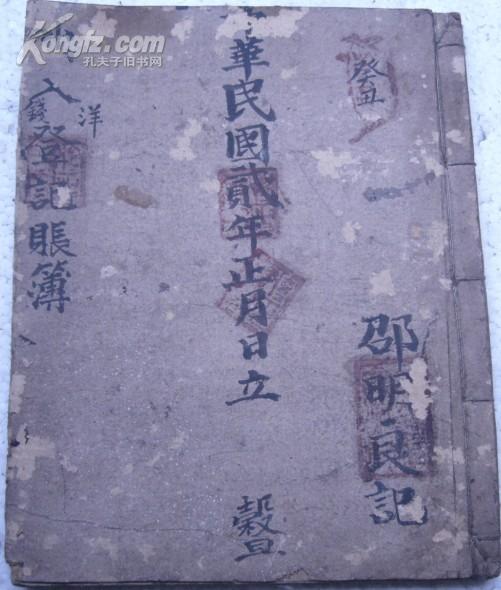 Kongfz.com
孔夫子旧书网
癸丑
邵明良記
華民國貳年正月日立
穀旦
入洋錢登記賬簿